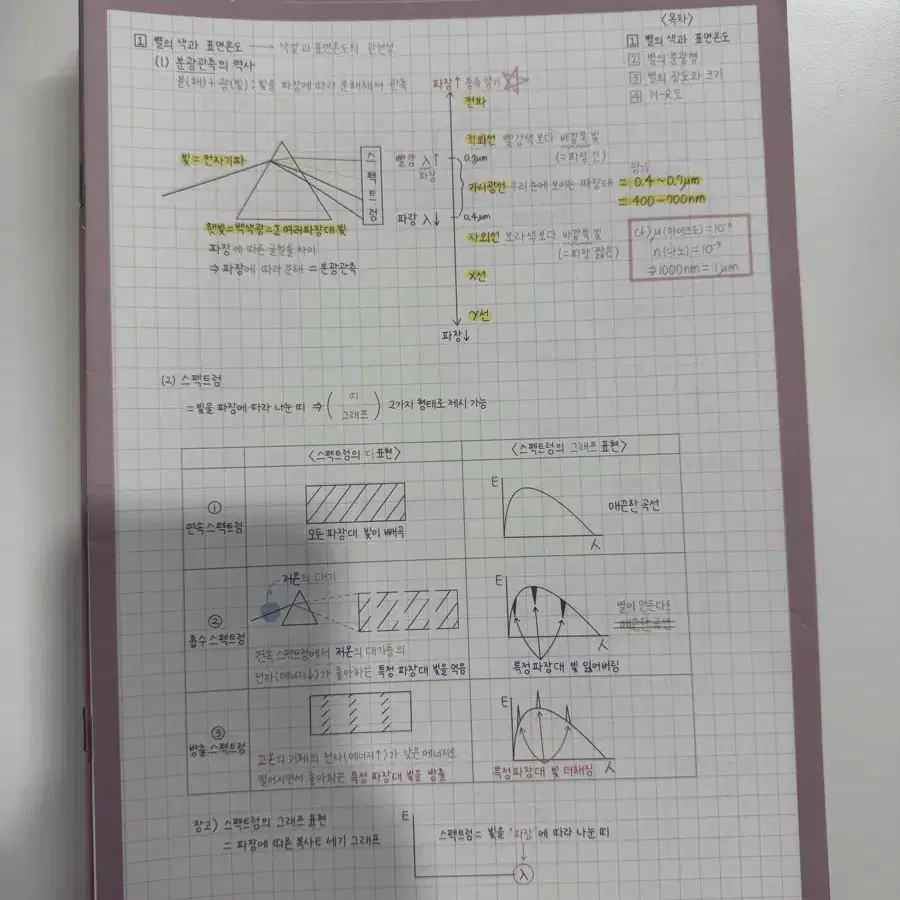 <목차>
1 별의 색과 표면온도
2 별의 분광형
3 별의 광도와 크기
4 H-R도
1 별의 색과 표면온도 → 색깔과 표면온도의 관련성
(1) 분광관측의 역사
분(해) + 광(빛) : 빛을 파장에 따라 분해해서 관측
파장↑ 종류 암기
전파
적외선 빨강색보다 바깥쪽 빛
(=파장 긴)
빛=전자기파
스펙트럼
빨강 λ↑
파장
0.7μm
가시광선 우리 눈에 보이는 파장대
암기
= 0.4~0.7μm
= 400~700nm
파랑 λ↓
0.4μm
햇빛=백색광=온 여러파장대 빛
파장에 따른 굴절률 차이
⇒ 파장에 따라 분해 = 분광관측
자외선 보라색보다 바깥쪽 빛
(=파장 짧은)
cf) μ(마이크로)=10⁻⁶
n(나노)=10⁻⁹
⇒ 1000nm = 1μm
X선
γ선
파장↓
(2) 스펙트럼
= 빛을 파장에 따라 나눈 띠 ⇒ ( 띠 그래프 ) 2가지 형태로 제시 가능
<스펙트럼의 띠 표현>
<스펙트럼의 그래프 표현>
①
연속 스펙트럼
모든 파장대 빛이 빼곡
E
λ
매끈한 곡선
②
흡수 스펙트럼
저온의 대기
연속 스펙트럼에서 저온의 대기층의
전자(에너지↓)가 좋아하는 특정 파장대 빛을 먹음
E
λ
별이 만든다!
매끈한 곡선
특정 파장대 빛 잃어버림
③
방출 스펙트럼
고온의 기체의 전자(에너지↑)가 낮은 에너지로
떨어지면서 좋아하는 특정 파장대 빛을 방출
E
λ
특정 파장대 빛 더해짐
참고) 스펙트럼의 그래프 표현
= 파장에 따른 복사E 세기 그래프
E
스펙트럼 = 빛을 '파장'에 따라 나눈 띠
λ